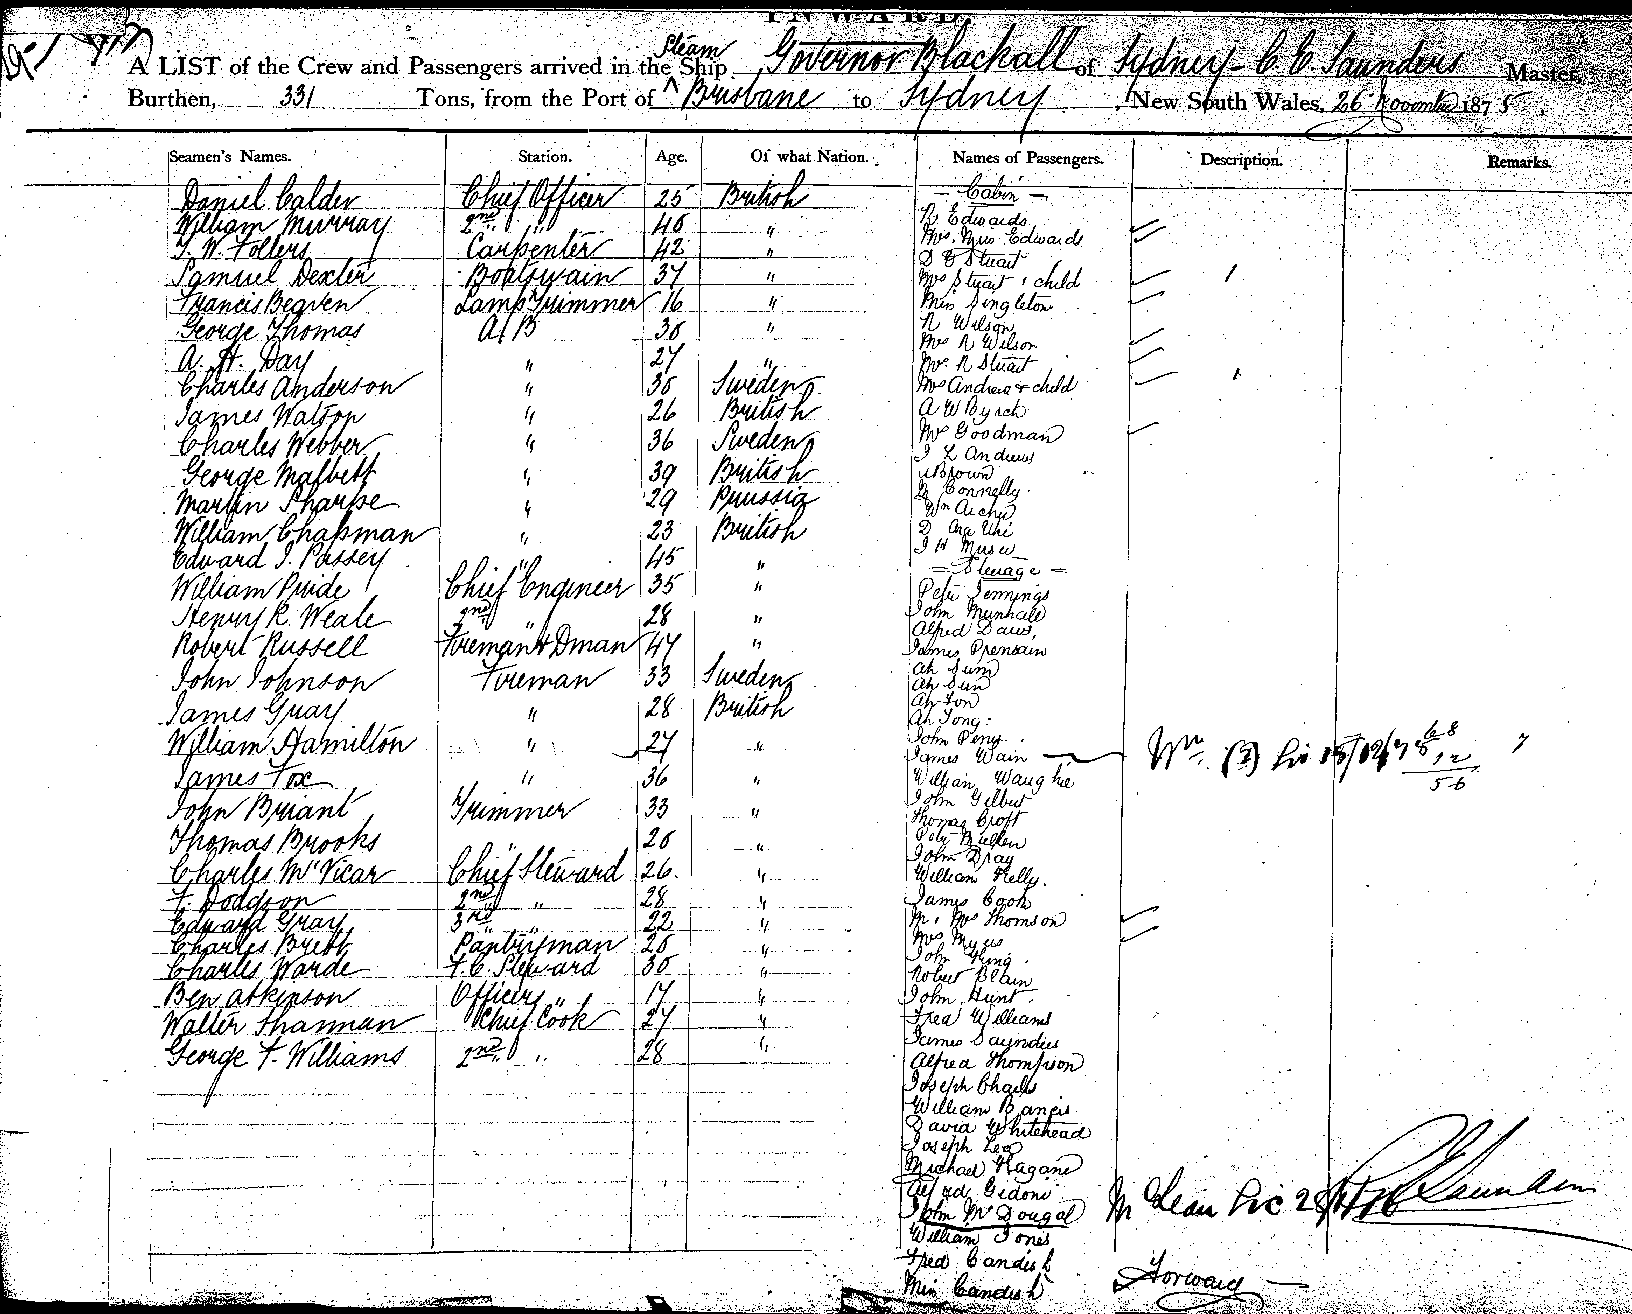 INWARD.
Steam
A LIST of the Crew and Passengers arrived in the Ship Governor Blackall of Sydney C E Saunders Master,
Burthen, 331 Tons, from the Port of Brisbane to Sydney, New South Wales, 26 November 1875.
Seamen's Names. Station. Age. Of what Nation. Names of Passengers. Description. Remarks.
Daniel Calder Chief Officer 25 British
William Murray 2nd " 40 "
T. W. Follers Carpenter 42 "
Samuel Dexter Boatswain 37 "
Francis Begven Lamp Trimmer 16 "
George Thomas A/B 30 "
A. H. Day " 27 "
Charles Anderson " 30 Sweden
James Watson " 26 British
Charles Webber " 36 Sweden
George Malbett " 39 British
Martin Sharpe " 29 Prussia
William Chapman " 23 British
Edward J. Passey " 45 "
William Pride Chief Engineer 35 "
Henry R. Weale 2nd " 28 "
Robert Russell Fireman & Dman 47 "
John Johnson Fireman 33 Sweden
James Gray " 28 British
William Hamilton " 27 "
James Fox " 36 "
John Briant Trimmer 33 "
Thomas Brooks " 20 "
Charles McVicar Chief Steward 26 "
F. Dodgson 2nd " 28 "
Edward Gray 3rd " 22 "
Charles Brett Pantryman 20 "
Charles Warde F. C. Steward 30 "
Ben Atkinson Officers " 17 "
Walter Shannan Chief Cook 27 "
George F. Williams 2nd " 28 "
— Cabin —
R Edwards
Mrs. Miss Edwards
D E Stuart
Mrs Stuart & child
Miss Singleton
R Wilson
Mrs R Wilson
Mrs R Stuart
Mrs Andrew & child
A W Byrch
Mrs Goodman
J L Andrews
Brown
Connelly
Wm Archer
D
J H
— Steerage —
Peter Jennings
John Munhall
Alfred Daws,
James
Ah Sum
Ah Sun
Ah Fon
Ah Tong
John Peny
James Wain
William Waughie
John Gilbert
Thomas Croft
Peter Bullen
John Dray
William Kelly
James Cook
Mr. Mrs Thomson
Mrs Myers
John King
Robert Blain
John Hunt
Fred Williams
James Saunders
Alfred Thompson
Joseph Charles
William Bangis
David Whitehead
Joseph Lee
Michael Hagane
Alfred Gedoni
John McDougal
William Jones
Fred Candish
Miss Candish
C E Saunders
Forward